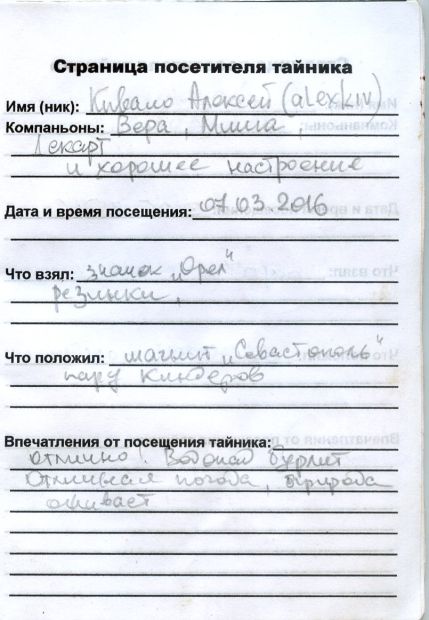 Страница посетителя тайника
Имя (ник): Кивало Алексей (alexkiv)
Компаньоны: Вера, Миша,
и хорошее настроение
Дата и время посещения: 07.03.2016
Что взял: значок „Орел"
резинки,
Что положил: магнит „Севастополь"
пару киндеров
Впечатления от посещения тайника:
Отлично! Водопад бурлит
Отличная погода, природа
оживает